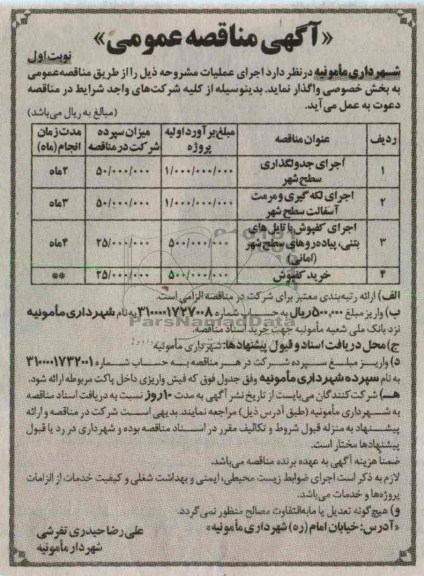 «آگهی مناقصه عمومی»
نوبت اول
شهرداری مأمونیه در نظر دارد اجرای عملیات مشروحه ذیل را از طریق مناقصه عمومی
به بخش خصوصی واگذار نماید. بدینوسیله از کلیه شرکت‌های واجد شرایط در مناقصه
دعوت به عمل می‌آید.
(مبالغ به ریال می‌باشد)
ردیف عنوان مناقصه مبلغ برآورد اولیه پروژه میزان سپرده شرکت در مناقصه مدت زمان انجام (ماه)
۱ اجرای جدولگذاری سطح شهر ۱/۰۰۰/۰۰۰/۰۰۰ ۵۰/۰۰۰/۰۰۰ ۲ماه
۲ اجرای لکه گیری و مرمت آسفالت سطح شهر ۱/۰۰۰/۰۰۰/۰۰۰ ۵۰/۰۰۰/۰۰۰ ۳ماه
۳ اجرای کفپوش با تایل های بتنی، پیاده‌روهای سطح شهر (امانی) ۵۰۰/۰۰۰/۰۰۰ ۲۵/۰۰۰/۰۰۰ ۴ماه
۴ خرید کفپوش ۵۰۰/۰۰۰/۰۰۰ ۲۵/۰۰۰/۰۰۰ **
الف) ارائه رتبه‌بندی معتبر برای شرکت در مناقصه الزامی است.
ب) واریز مبلغ ۵۰۰,۰۰۰ریال به حساب شماره ۳۱۰۰۰۰۱۷۲۷۰۰۸ به نام شهرداری مأمونیه
نزد بانک ملی شعبه مأمونیه جهت خرید اسناد مناقصه.
ParsNamadData
ج) محل دریافت اسناد و قبول پیشنهادها: شهرداری مأمونیه
د) واریز مبلغ سپرده شرکت در هر مناقصه به حساب شماره ۳۱۰۰۰۰۱۷۳۲۰۰۱
به نام سپرده شهرداری مأمونیه وفق جدول فوق که فیش واریزی داخل پاکت مربوطه ارائه شود.
هـ) شرکت‌کنندگان می‌بایست از تاریخ نشر آگهی به مدت ۱۰روز نسبت به دریافت اسناد مناقصه
به شهرداری مأمونیه (طبق آدرس ذیل) مراجعه نمایند. بدیهی است شرکت در مناقصه و ارائه
پیشنهاد به منزله قبول شروط و تکالیف مقرر در اسناد مناقصه بوده و شهرداری در رد یا قبول
پیشنهادها مختار است.
ضمناً هزینه آگهی به عهده برنده مناقصه می‌باشد.
لازم به ذکر است اجرای ضوابط زیست محیطی، ایمنی و بهداشت شغلی و کیفیت خدمات از الزامات
پروژه‌ها و خدمات می‌باشد.
و) هیچ‌گونه تعدیل یا مابه‌التفاوت مصالح منظور نمی‌گردد.
«آدرس: خیابان امام (ره) شهرداری مأمونیه»
علی رضا حیدری تفرشی
شهردار مأمونیه